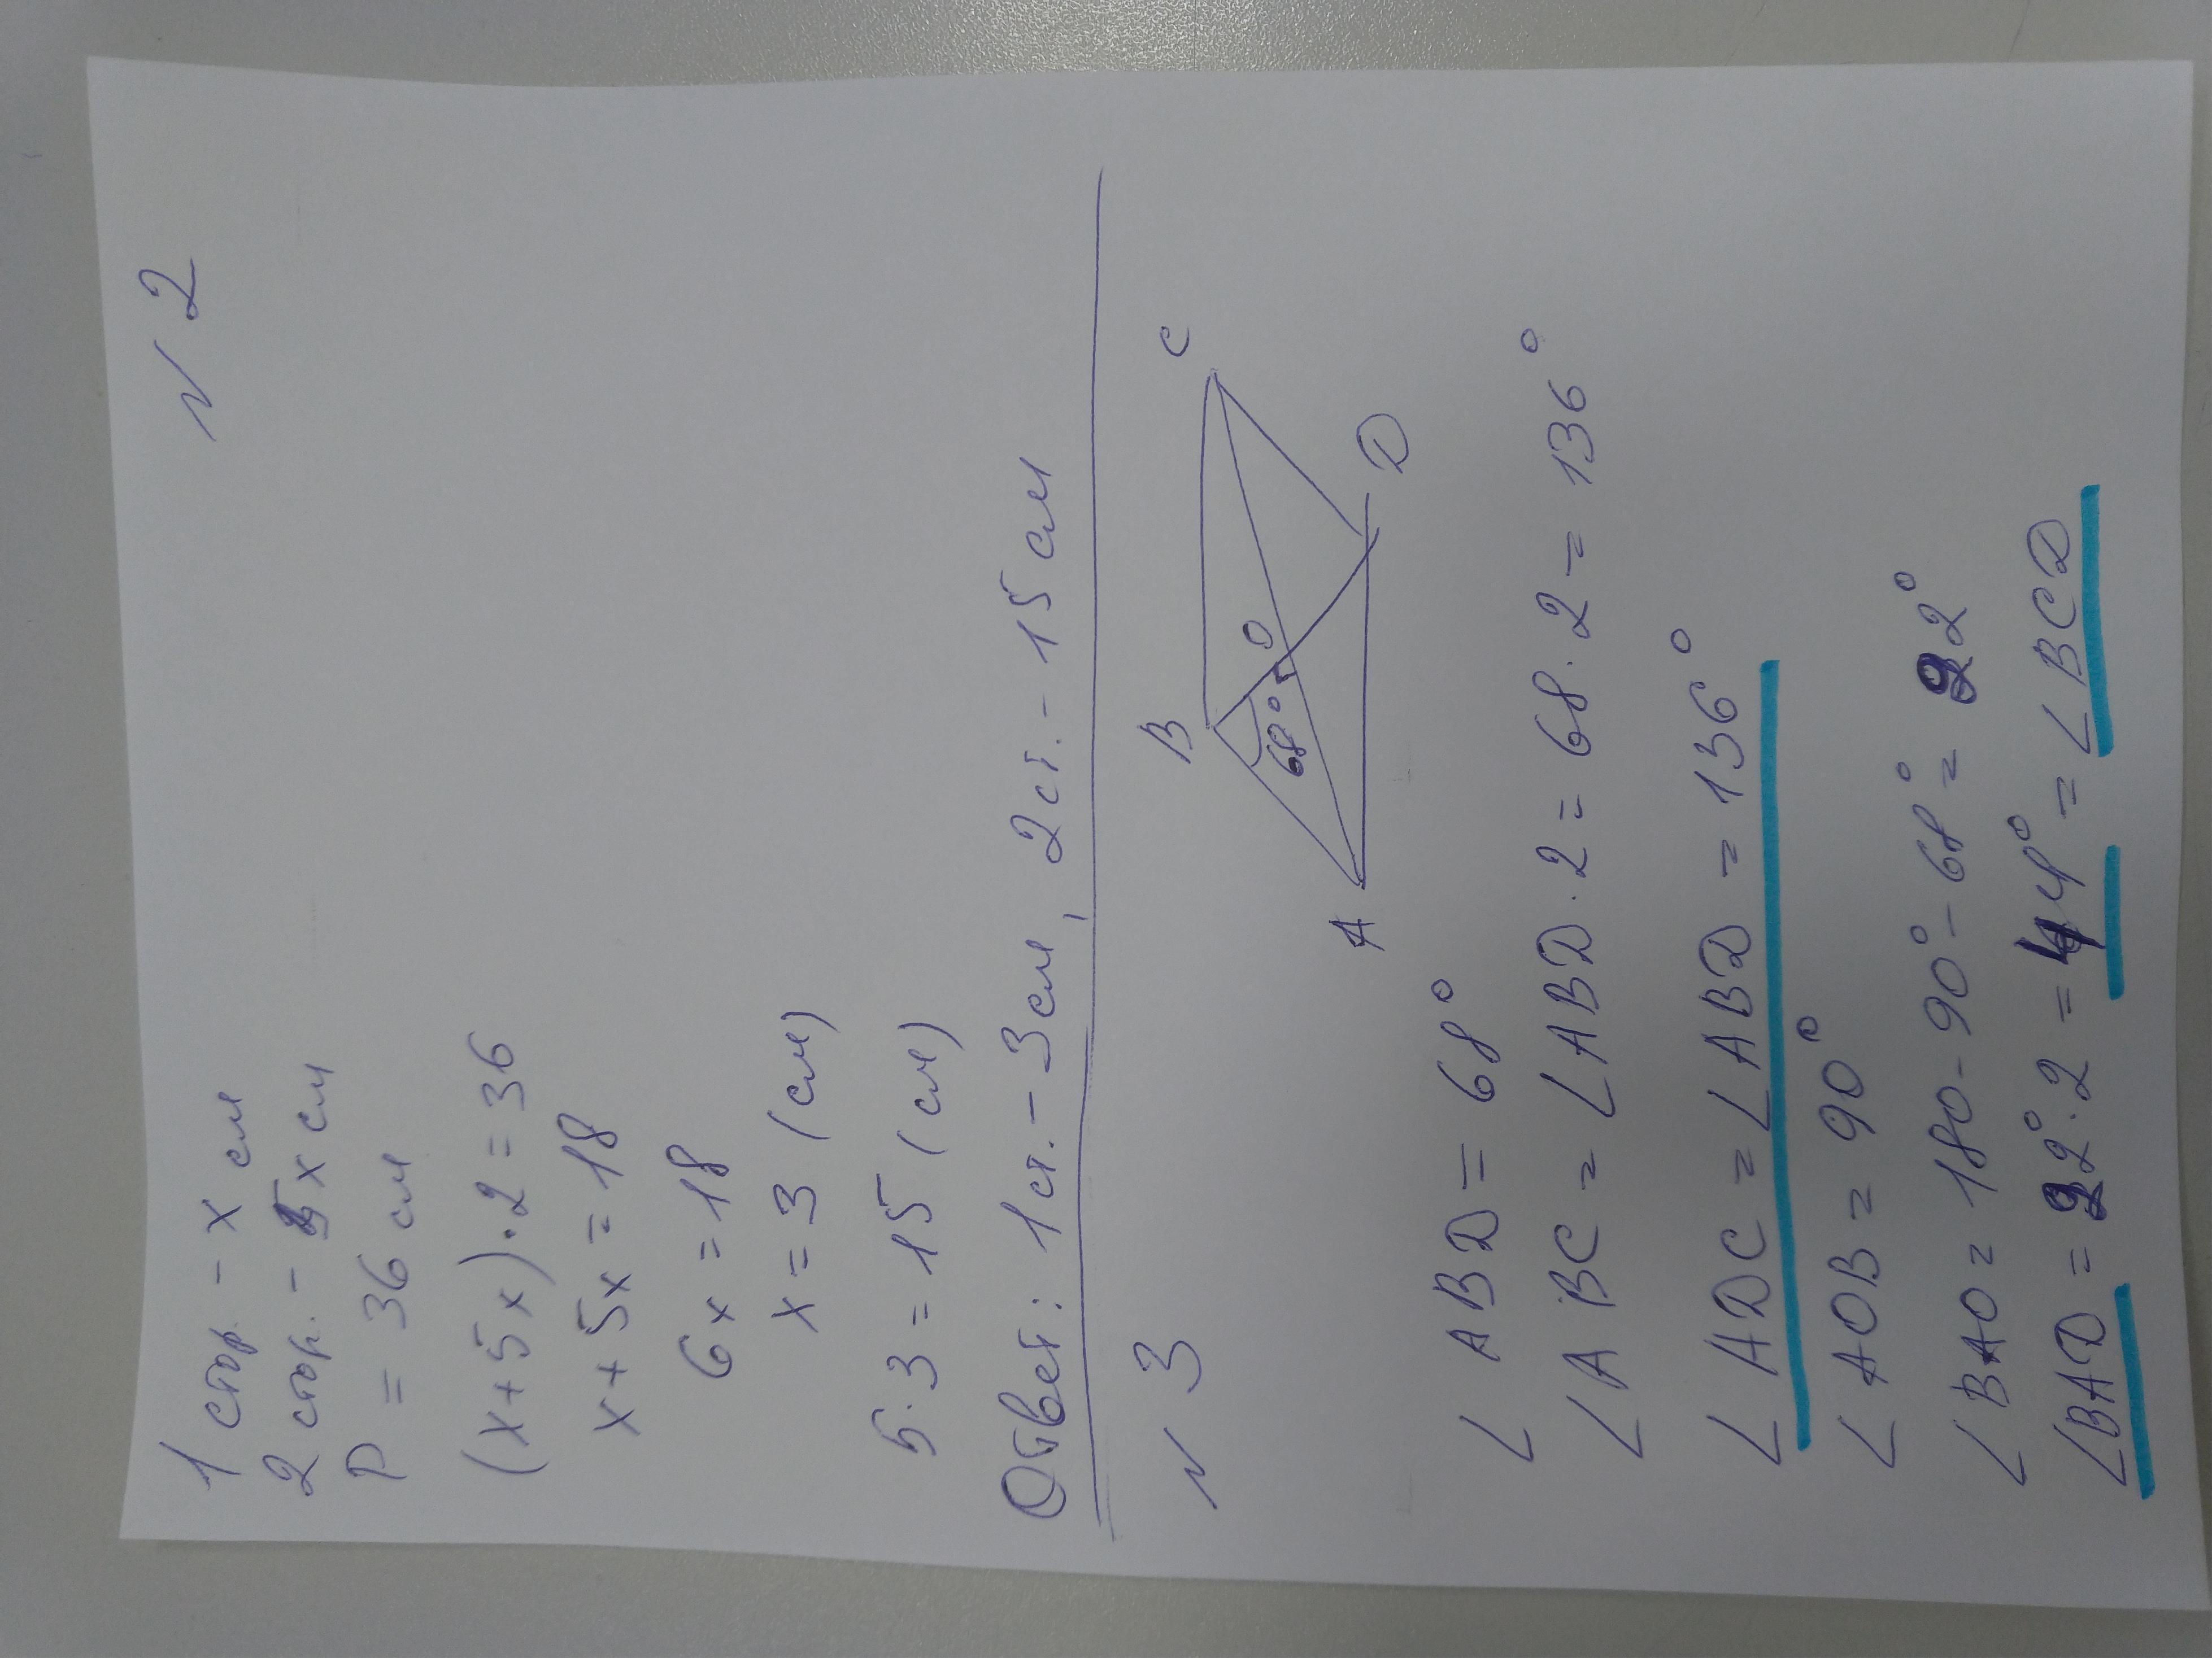 № 2
1 стор. - x см
2 стор. - 5x см
P = 36 см
(x+5x)·2 = 36
x+5x = 18
6x = 18
x = 3 (см)
5·3 = 15 (см)
Ответ: 1 ст. - 3 см, 2 ст. - 15 см
№ 3
B C
68° O
A D
∠ABD = 68°
∠ABC = ∠ABD·2 = 68·2 = 136°
∠ADC = ∠ABD = 136°
∠AOB = 90°
∠BAO = 180-90°-68° = 22°
∠BAD = 22°·2 = 44° = ∠BCD